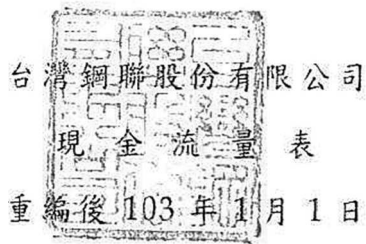 台灣鋼聯股份有限公司
現金流量表
重編後 103 年 1 月 1 日